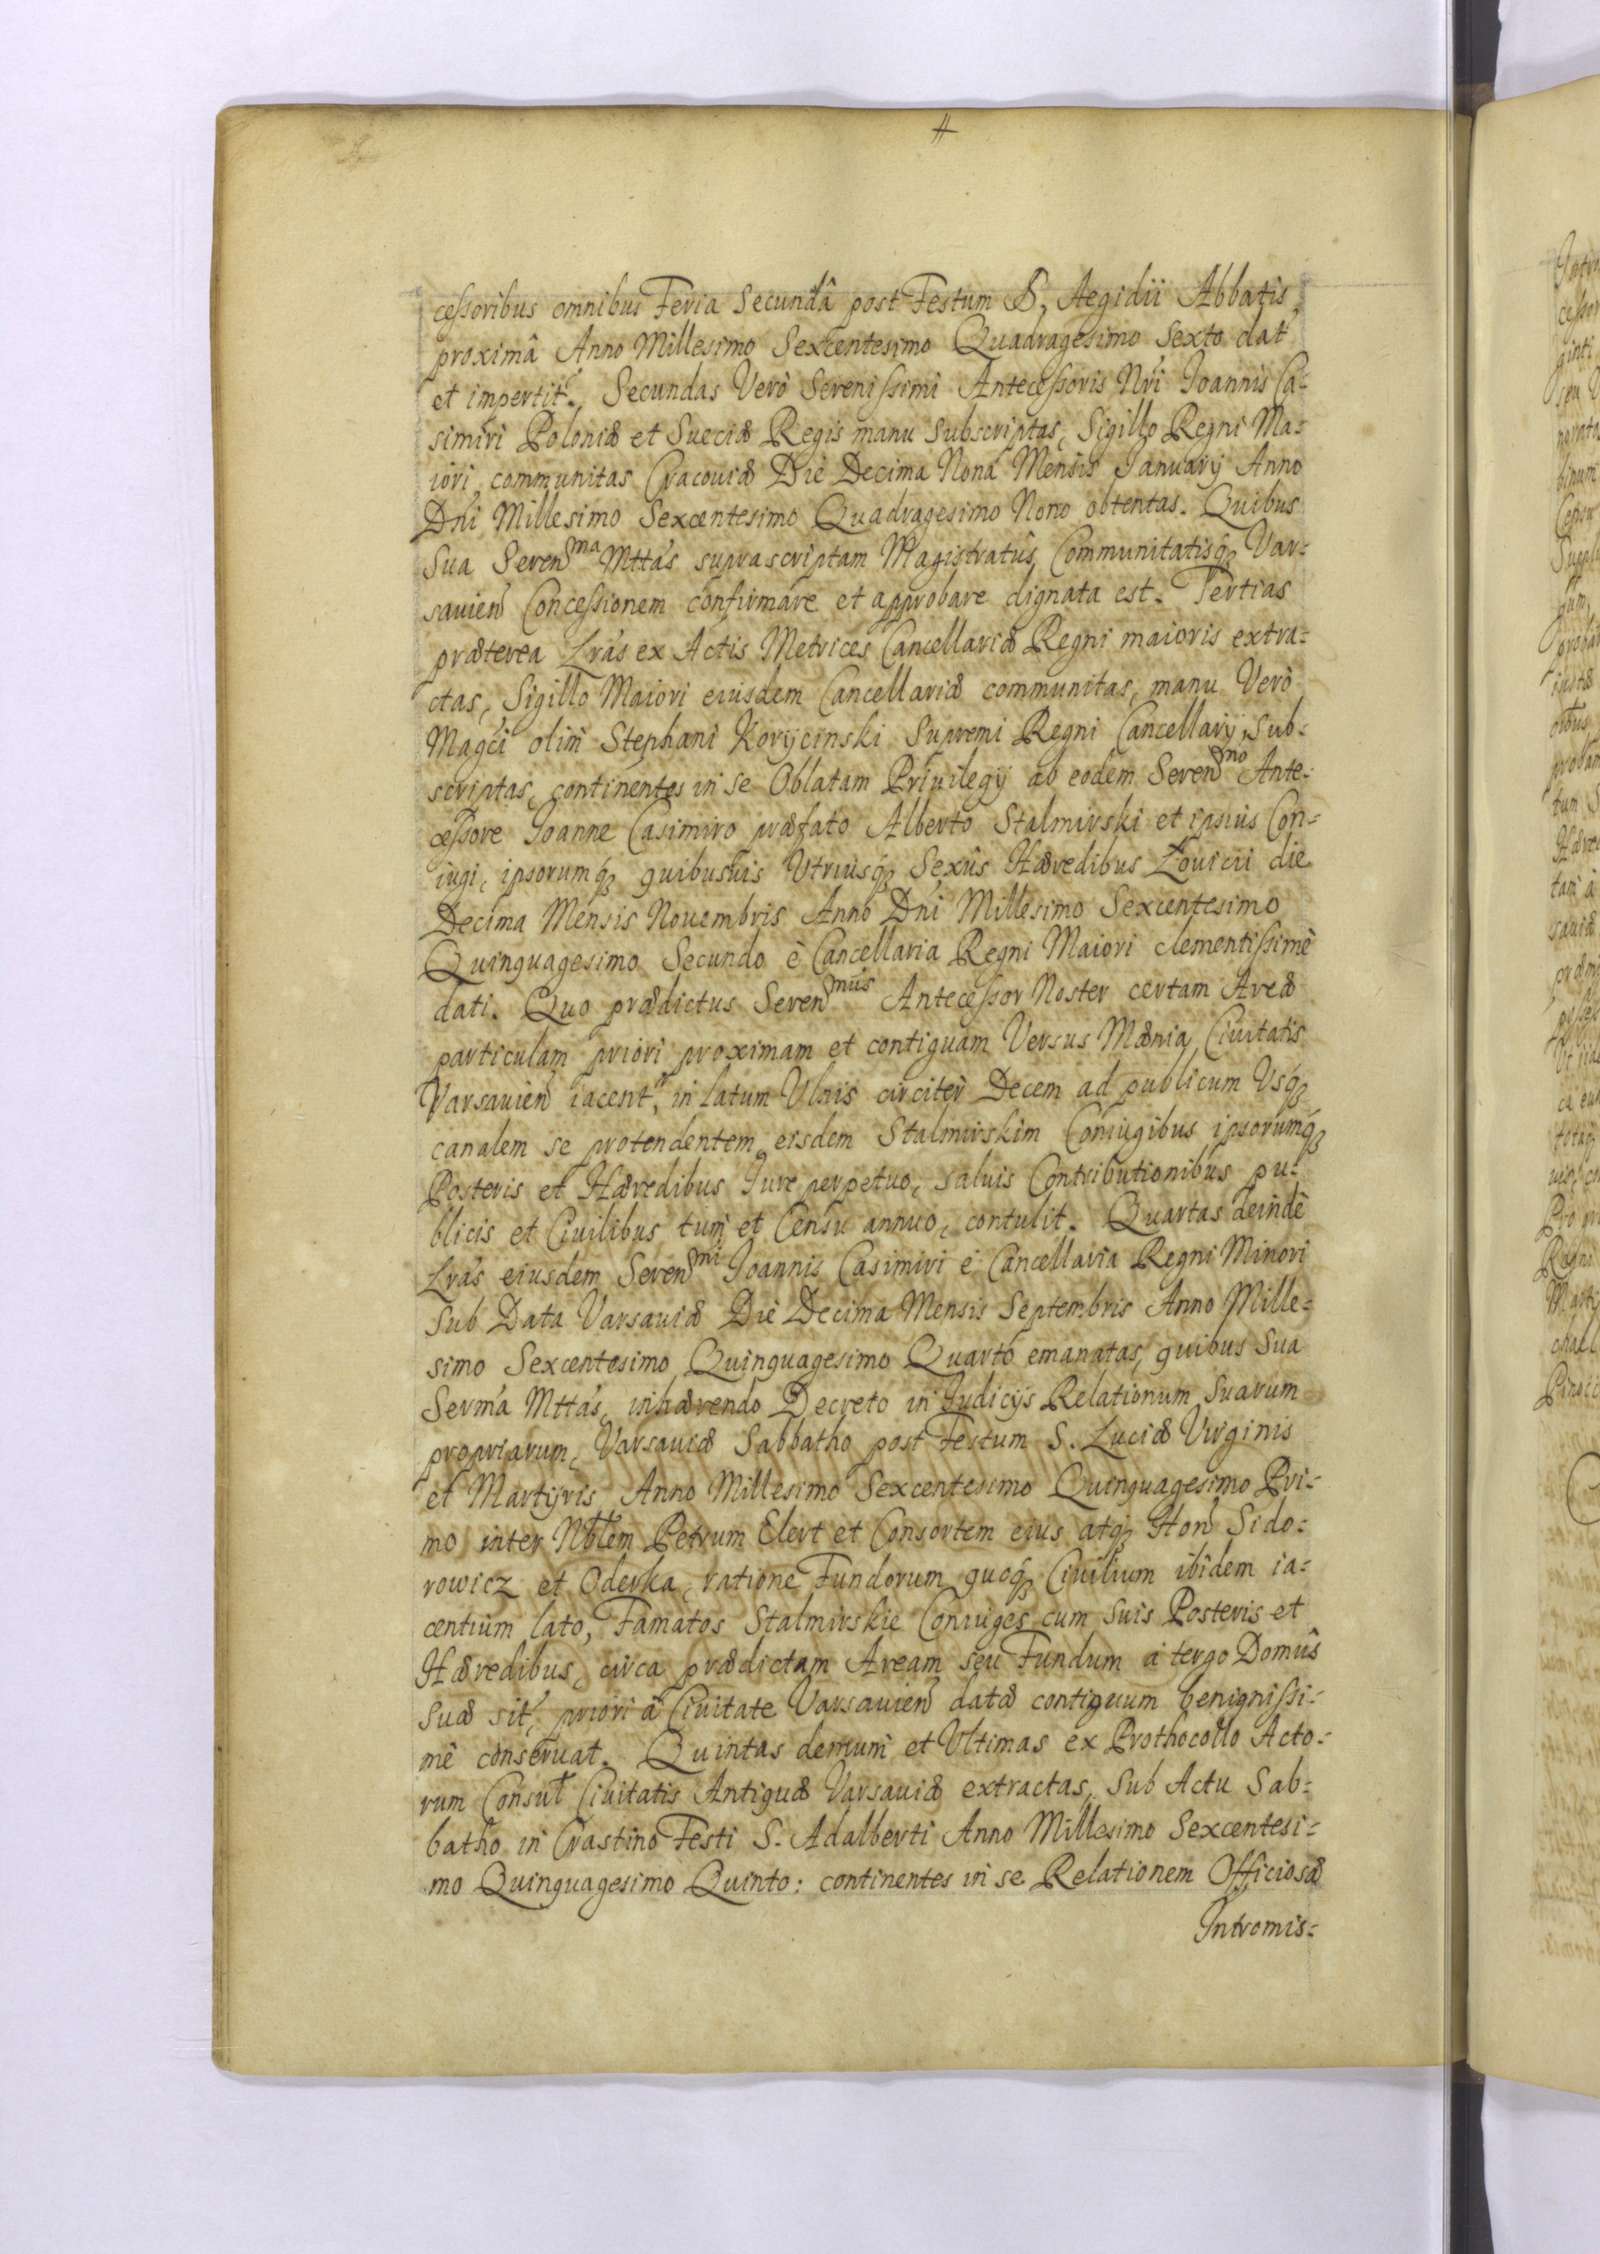 4
cessoribus omnibus Feria Secundâ post Festum S. Aegidii Abbatis
proximâ Anno Millesimo Sexcentesimo Quadragesimo Sexto dat
et impertit. Secundas Verò Serenissimi Antecessoris Nri Joannis Ca=
simiri Poloniæ et Sueciæ Regis manu Subscriptas, Sigillo Regni Ma=
iori communitas Cracouiæ Die Decima Nona Mensis Januarÿ Anno
Dni Millesimo Sexcentesimo Quadragesimo Nono obtentas. Quibus
Sua Seren^ma Mttas suprascriptam Magistratûs Communitatisq₃ Var=
sauien Concessionem confirmare et approbare dignata est. Tertias
præterea Lras ex Actis Metrices Cancellariæ Regni maioris extra=
ctas, Sigillo Maiori eiusdem Cancellariæ communitas, manu Verò
Magci olim Stephani Korycinski Supremi Regni Cancellarÿ, Sub=
scriptas, continentes in se Oblatam Priuilegÿ ab eodem Seren^mo Ante=
cessore Joanne Casimiro præfato Alberto Stalmirski et ipsius Con=
iugi, ipsorumq₃ quibusuis Utriusq₃ Sexûs Hæredibus Louicii die
Decima Mensis Nouembris Anno Dni Millesimo Sexcentesimo
Quinquagesimo Secundo è Cancellaria Regni Maiori clementissimè
dati. Quo prædictus Seren^mus Antecessor Noster certam Areæ
particulam priori proximam et contiguam Versus Mænia Ciuitatis
Varsauien iacent, in latum Ulnis circiter Decem ad publicum Usq₃
canalem se protendentem eisdem Stalmirskim Coniugibus ipsorumq₃
Posteris et Hæredibus Jure perpetuo, saluis Contributionibus pu=
blicis et Ciuilibus tum et Censu annuo, contulit. Quartas deinde
Lras eiusdem Seren^mi Joannis Casimiri è Cancellaria Regni Minori
Sub Data Varsauiæ Die Decima Mensis Septembris Anno Mille=
simo Sexcentesimo Quinquagesimo Quarto emanatas, quibus Sua
Serma Mttas, inhærendo Decreto in Judicÿs Relationum Suarum
propriarum, Varsauiæ Sabbatho post Festum S. Luciæ Virginis
et Martÿris Anno Millesimo Sexcentesimo Quinquagesimo Pri=
mo inter Nobtem Petrum Elert et Consortem eius atq₃ Hon Sido=
rowicz et Oderka, ratione Fundorum quoq₃ Ciuilium ibidem ia=
centium lato, Famatos Stalmirskie Coniuges cum Suis Posteris et
Hæredibus, circa prædictam Aream seu Fundum à tergo Domûs
Suæ sit, priori à Ciuitate Varsauien datæ contiguum benignissi=
mè conseruat. Quintas demum et Ultimas ex Prothocollo Acto=
rum Consul Ciuitatis Antiquæ Varsauiæ extractas, Sub Actu Sab=
batho in Crastino Festi S. Adalberti Anno Millesimo Sexcentesi=
mo Quinquagesimo Quinto: continentes in se Relationem Officiosæ
Intromis=